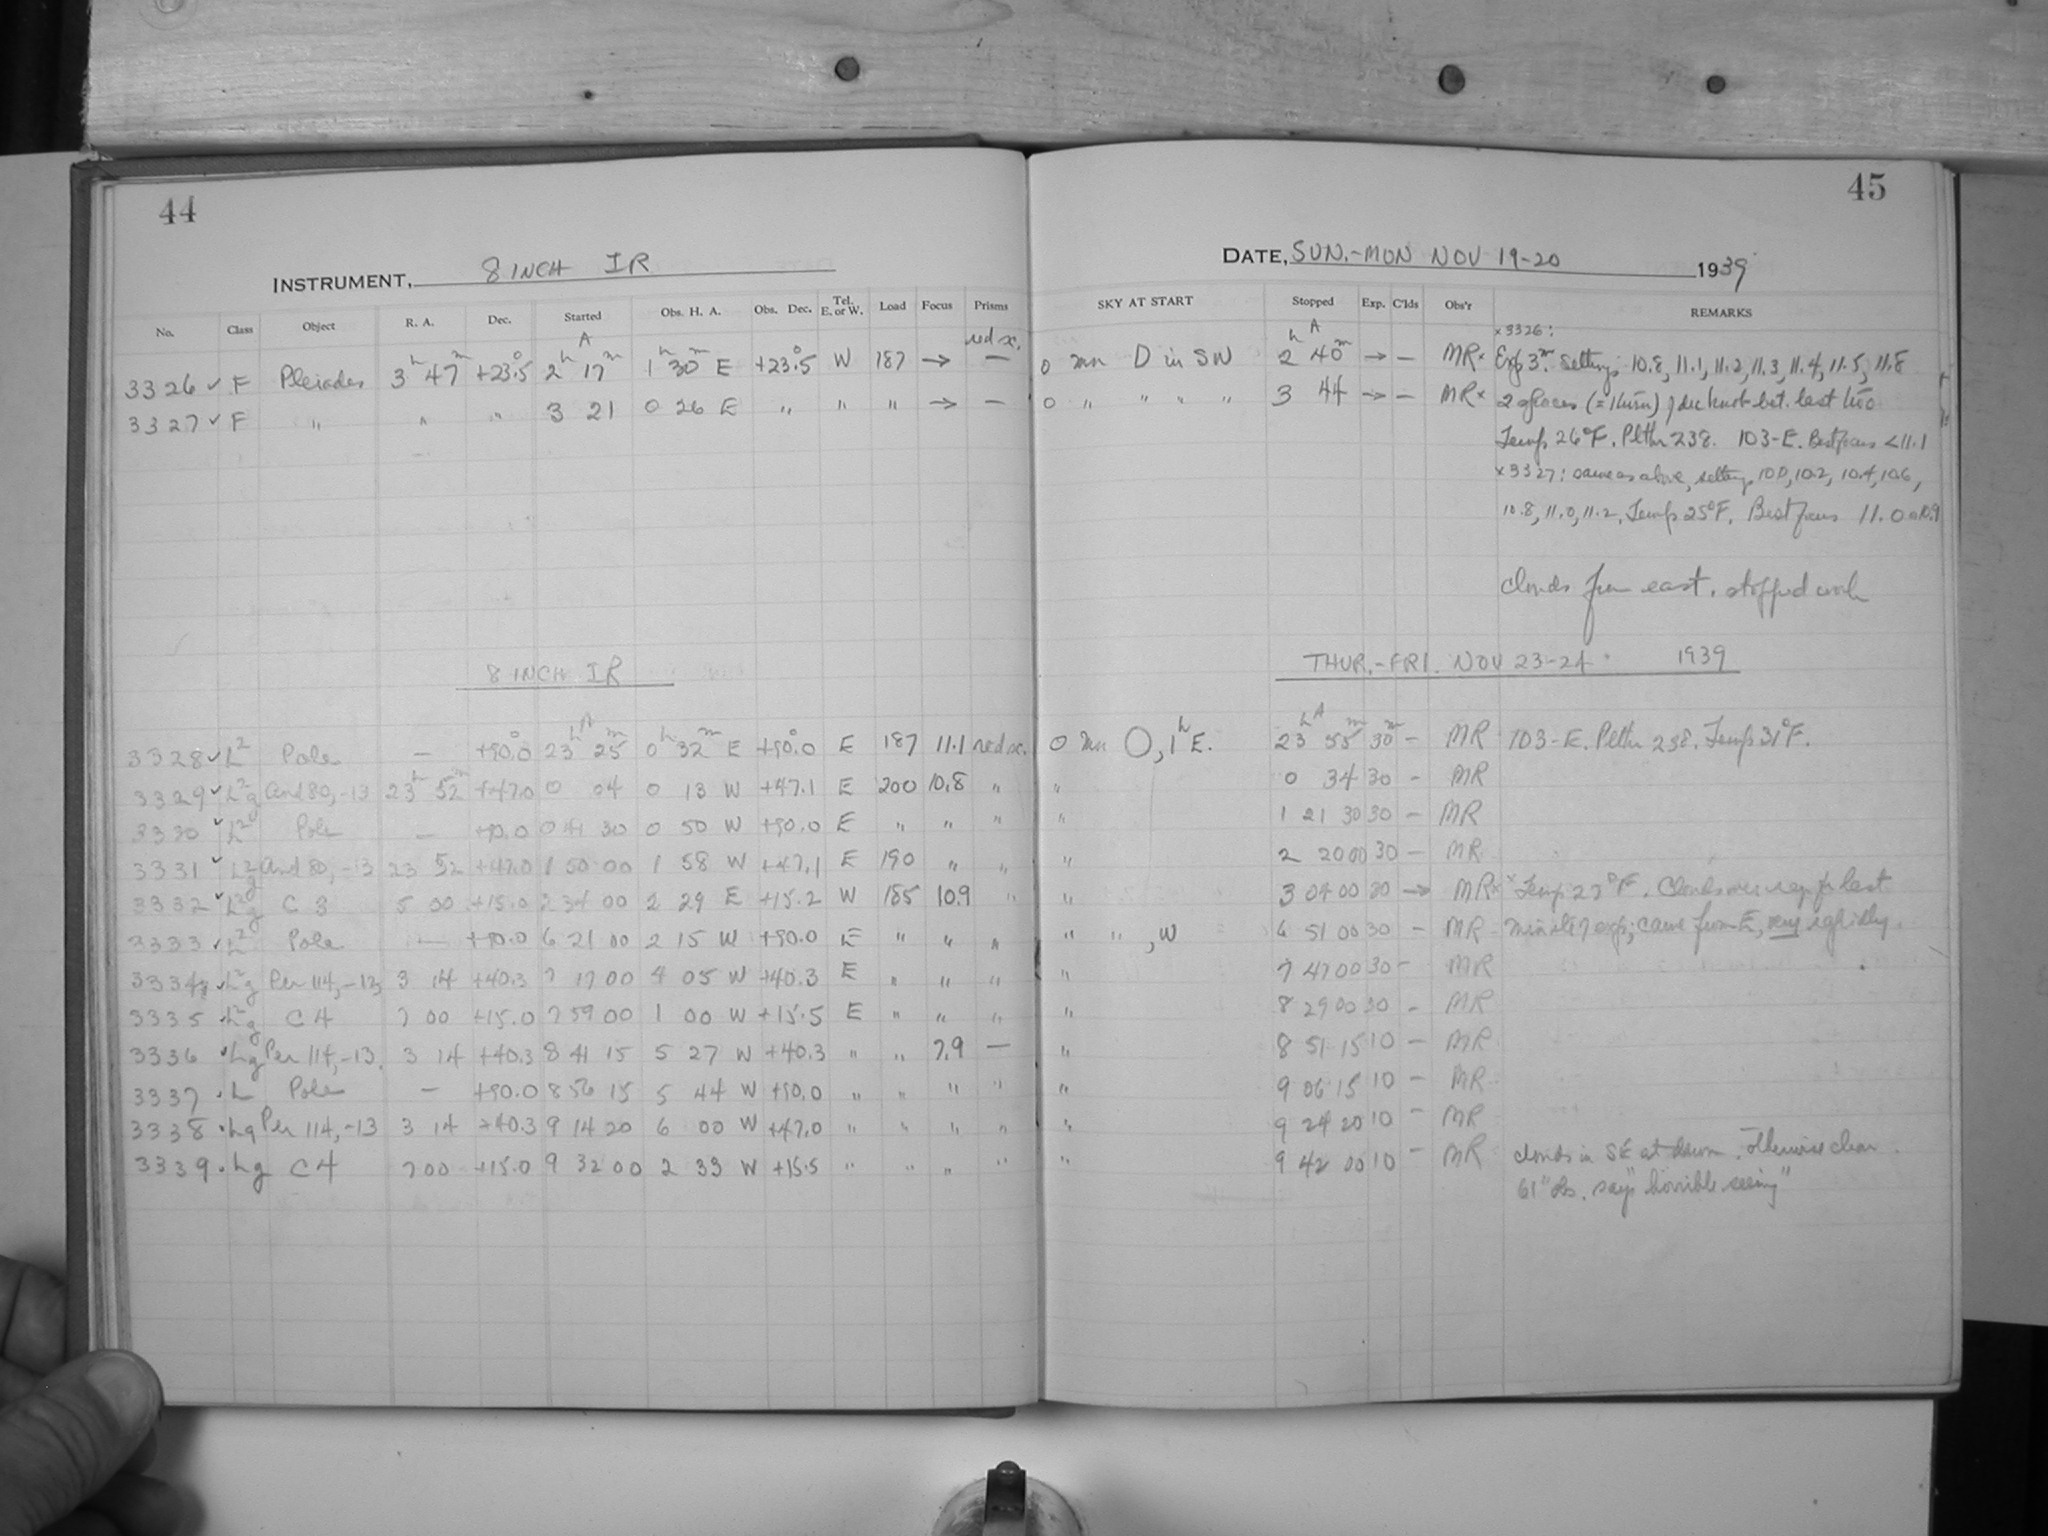 44
45
INSTRUMENT, 8 INCH IR
DATE, SUN.-MON NOV 19-20 1939
No. Class Object R. A. Dec. Started Obs. H. A. Obs. Dec. Tel. E. or W. Load Focus Prisms SKY AT START Stopped Exp. C'lds Obs'r REMARKS
red x. × 3326:
3326 ✓ F Pleiades 3h 47m +23°.5 2h A 17m 1h 30m E +23°.5 W 187 → — 0 mn D in SW 2h A 40m → — MR× Exp 3m. Settings 10.8, 11.1, 11.2, 11.3, 11.4, 11.5, 11.8
3327 ✓ F " " " 3 21 0 26 E " " " → — 0 " " " " 3 44 → — MR× 2 (= 1 turn) dec knob bet. last two
Temp 26°F. Pltn 238. 103-E. Best focus < 11.1
× 3327: same as above, settings 10.0, 10.2, 10.4, 10.6,
10.8, 11.0, 11.2. Temp 25°F. Best focus 11.0 or 10.9
Clouds from east. stopped work
8 INCH IR THUR.-FRI. NOV 23-24 1939
3328 ✓ L2 Pole — +90°.0 23h A 25m 0h 32m E +90°.0 E 187 11.1 red x. 0 mn O, 1h E. 23h A 55m 30m – MR 103-E. Pltn 238. Temp 31°F.
3329 ✓ L2g And 80, -13 23h 52m +47.0 0 04 0 13 W +47.1 E 200 10.8 " " 0 34 30 – MR
3330 ✓ L2 Pole — +90.0 0 41 30 0 50 W +90.0 E " " " " 1 21 30 30 – MR
3331 ✓ L2g And 80, -13 23 52 +47.0 1 50 00 1 58 W +47.1 E 190 " " " 2 20 00 30 – MR
3332 ✓ L2g C 3 5 00 +15.0 2 34 00 2 29 E +15.2 W 185 10.9 " " 3 04 00 30 → MR× × Temp 27°F. Clouds over region for last
3333 ✓ L2 Pole — +90.0 6 21 00 2 15 W +90.0 E " " " " " , W 6 51 00 30 – MR minute of exp; came from E, very rapidly.
3334 ✓ L2g Per 114, -13 3 14 +40.3 7 17 00 4 05 W +40.3 E " " " " 7 47 00 30 – MR
3335 L2g C 4 7 00 +15.0 7 59 00 1 00 W +15.5 E " " " " 8 29 00 30 – MR
3336 ✓ Lg Per 114, -13 3 14 +40.3 8 41 15 5 27 W +40.3 " " 7.9 — " 8 51 15 10 – MR
3337 L Pole — +90.0 8 56 15 5 44 W +90.0 " " " " " 9 06 15 10 – MR
3338 Lg Per 114, -13 3 14 +40.3 9 14 20 6 00 W +47.0 " " " " " 9 24 20 10 – MR
3339 Lg C 4 7 00 +15.0 9 32 00 2 33 W +15.5 " " " " " 9 42 00 10 – MR clouds in SE at dawn. Otherwise clear.
61" obs. says "horrible seeing"